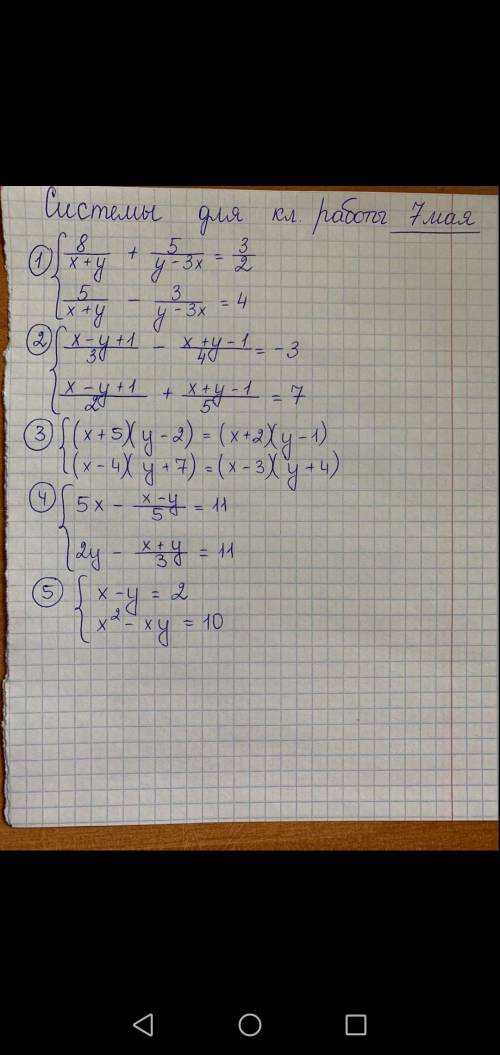 Системы для кл. работы 7 мая
① { 8/(x+y) + 5/(y-3x) = 3/2
5/(x+y) - 3/(y-3x) = 4
② { (x-y+1)/3 - (x+y-1)/4 = -3
(x-y+1)/2 + (x+y-1)/5 = 7
③ { (x+5)(y-2) = (x+2)(y-1)
(x-4)(y+7) = (x-3)(y+4)
④ { 5x - (x-y)/5 = 11
2y - (x+y)/3 = 11
⑤ { x-y = 2
x² - xy = 10